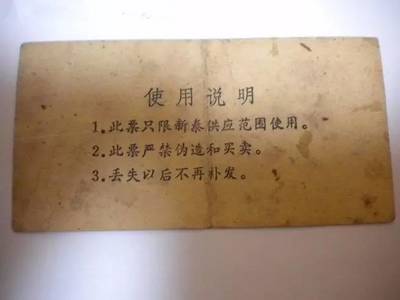 使用说明
1.此票只限新泰供应范围使用。
2.此票严禁伪造和买卖。
3.丢失以后不再补发。